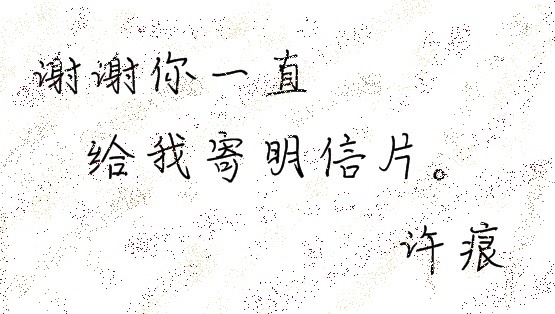 谢谢你一直
给我寄明信片。
许痕